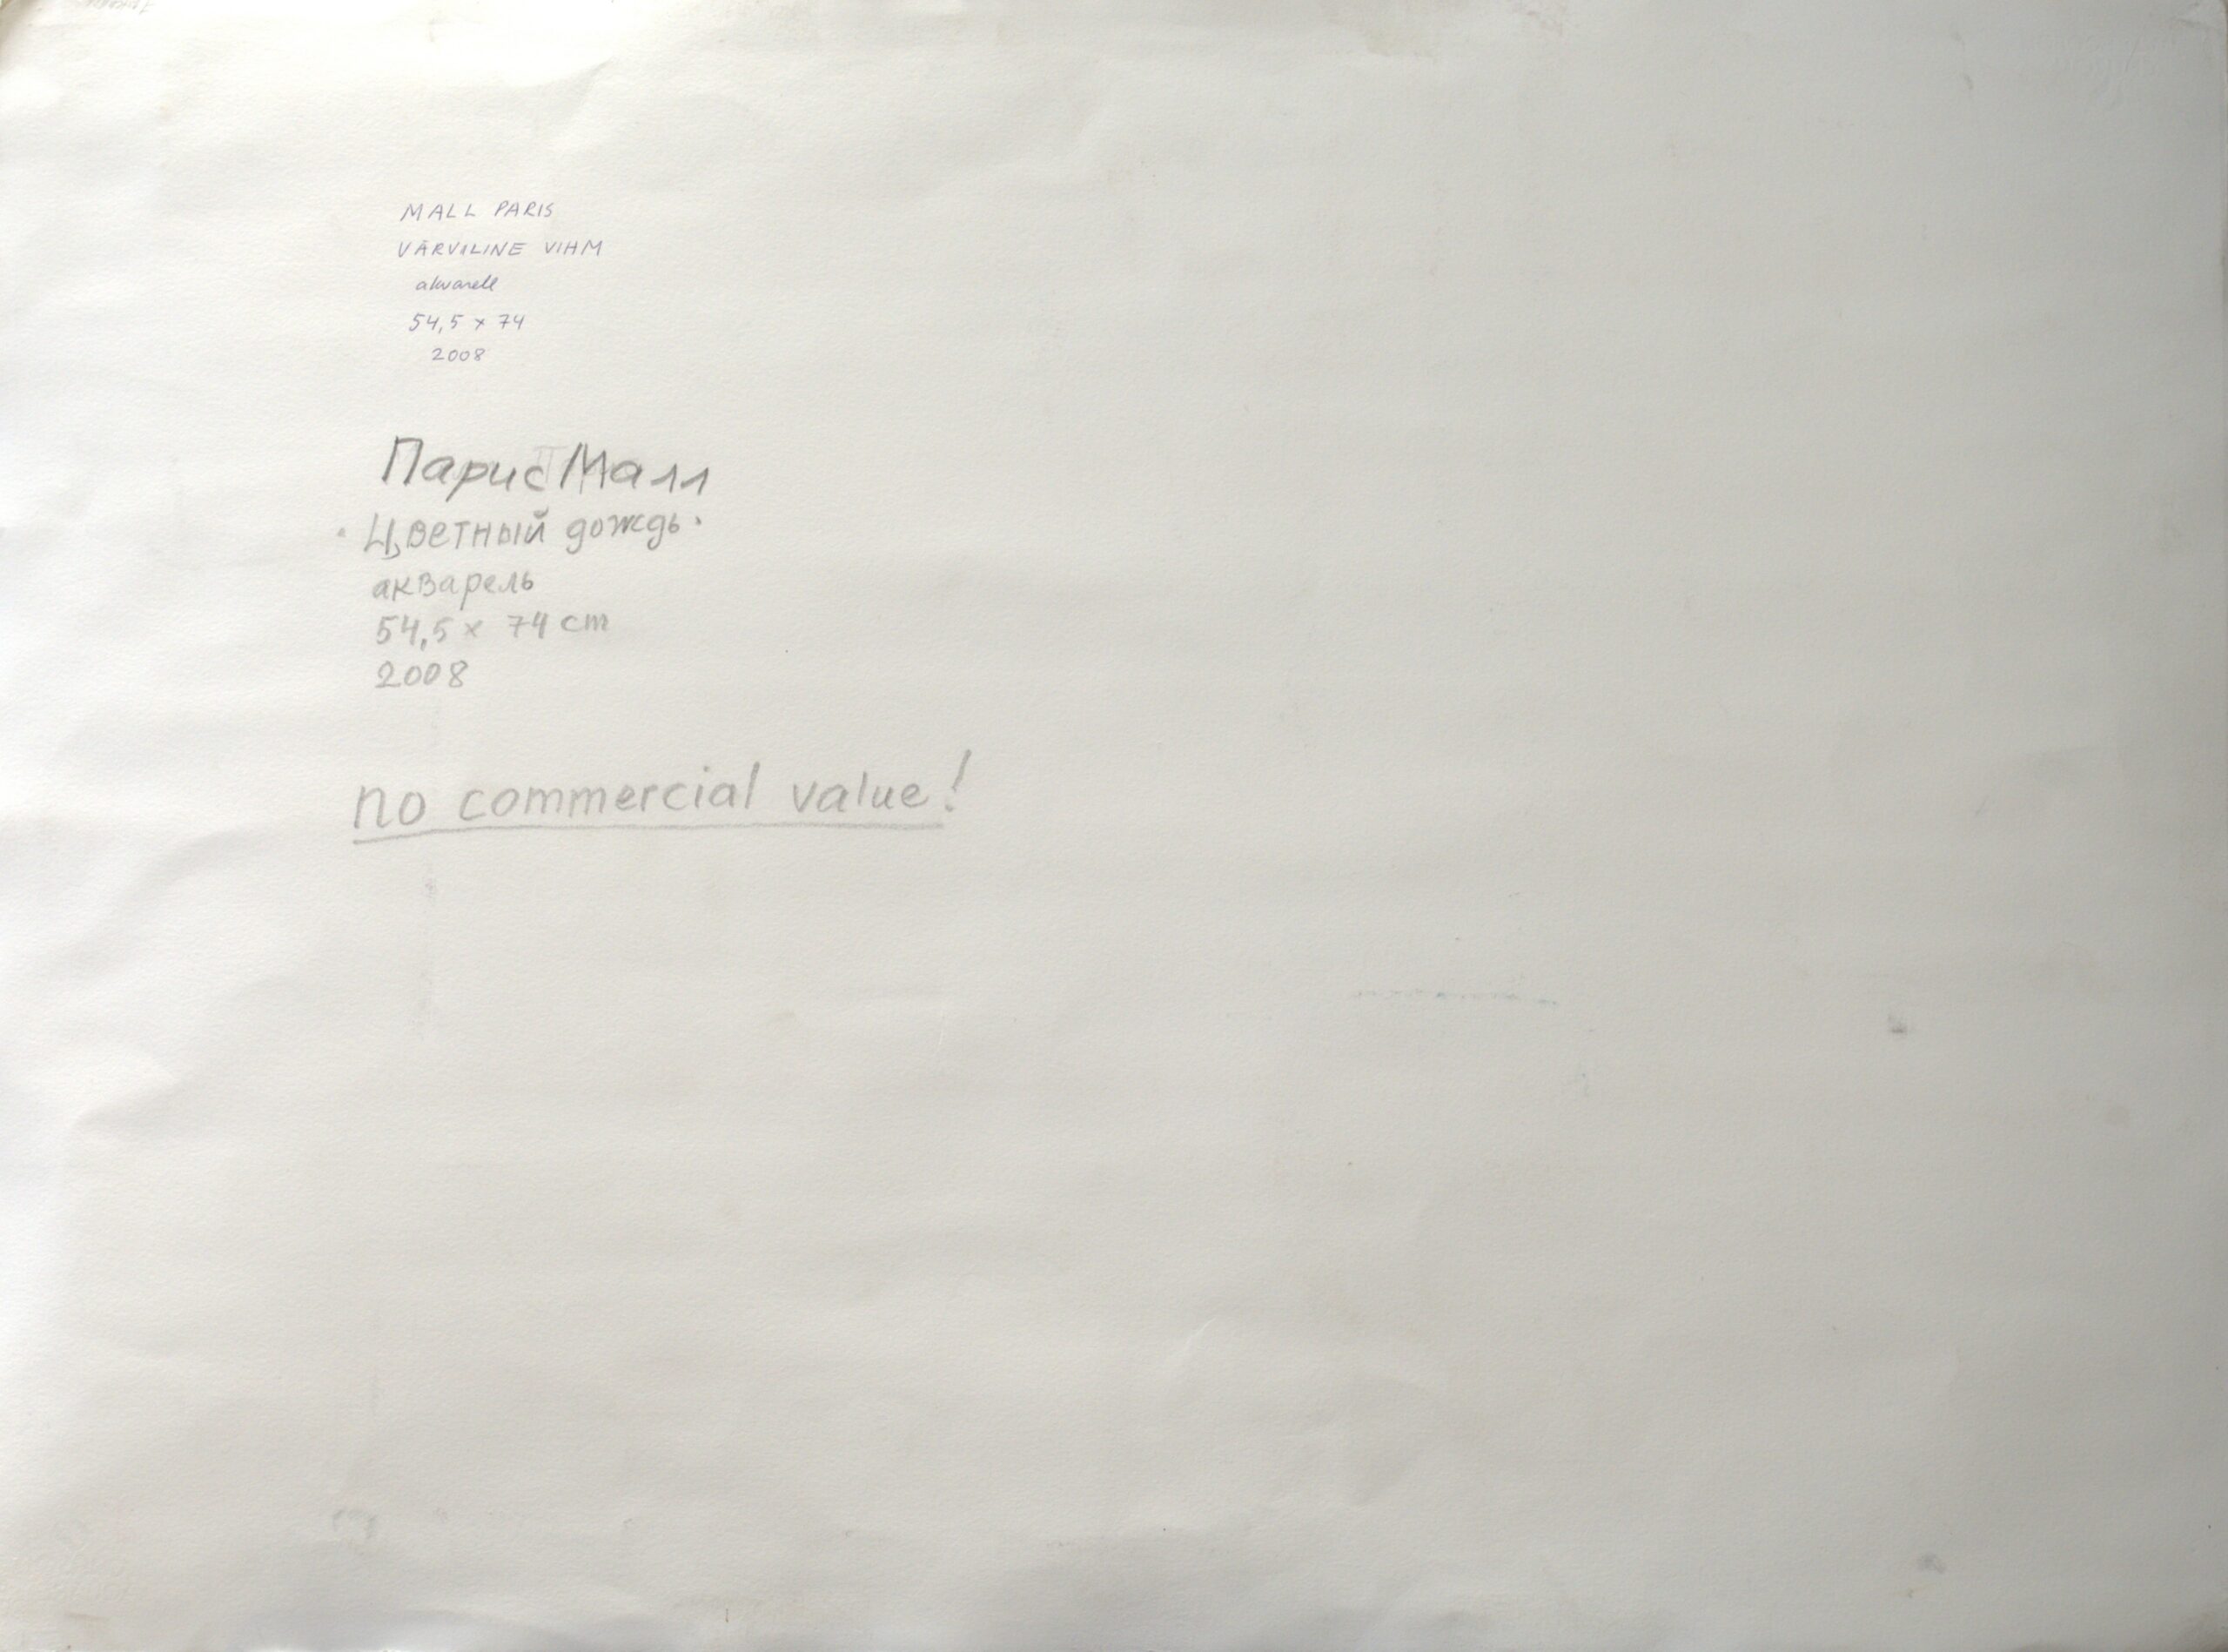 MALL PARIS
VÄRVILINE VIHM
akvarell
54,5 x 74
2008
Парис Малл
"Цветный дождь"
акварель
54,5 x 74 cm
2008
no commercial value!